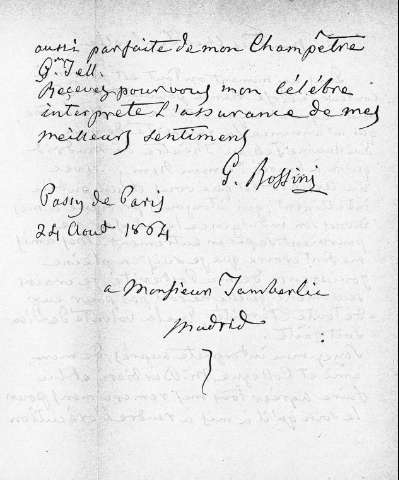 aussi parfaite de mon Champêtre
Gme Tell.
Reçevez pour vous mon célébre
interprete l'assurance de mes
meilleurs sentimens
G. Rossini
Passy de Paris
24 Aout 1864
a Monsieur Tamberlic
Madrid